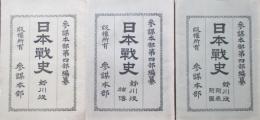 參謀本部第四部編纂
日本戰史 姉川役
版權所有 參謀本部
參謀本部第四部編纂
日本戰史 姉川役 補傳
版權所有 參謀本部
參謀本部第四部編纂
日本戰史 姉川役 附表 附圖
版權所有 參謀本部